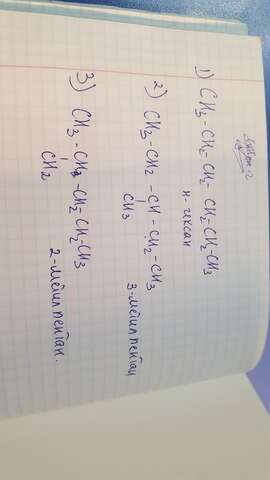 1) CH3-CH2-CH2-CH2-CH2-CH3
н-гексан
2) CH3-CH2-CH-CH2-CH3
CH3
3-метилпентан
3) CH3-CH2-CH2-CH2CH3
CH2
2-метилпентан.